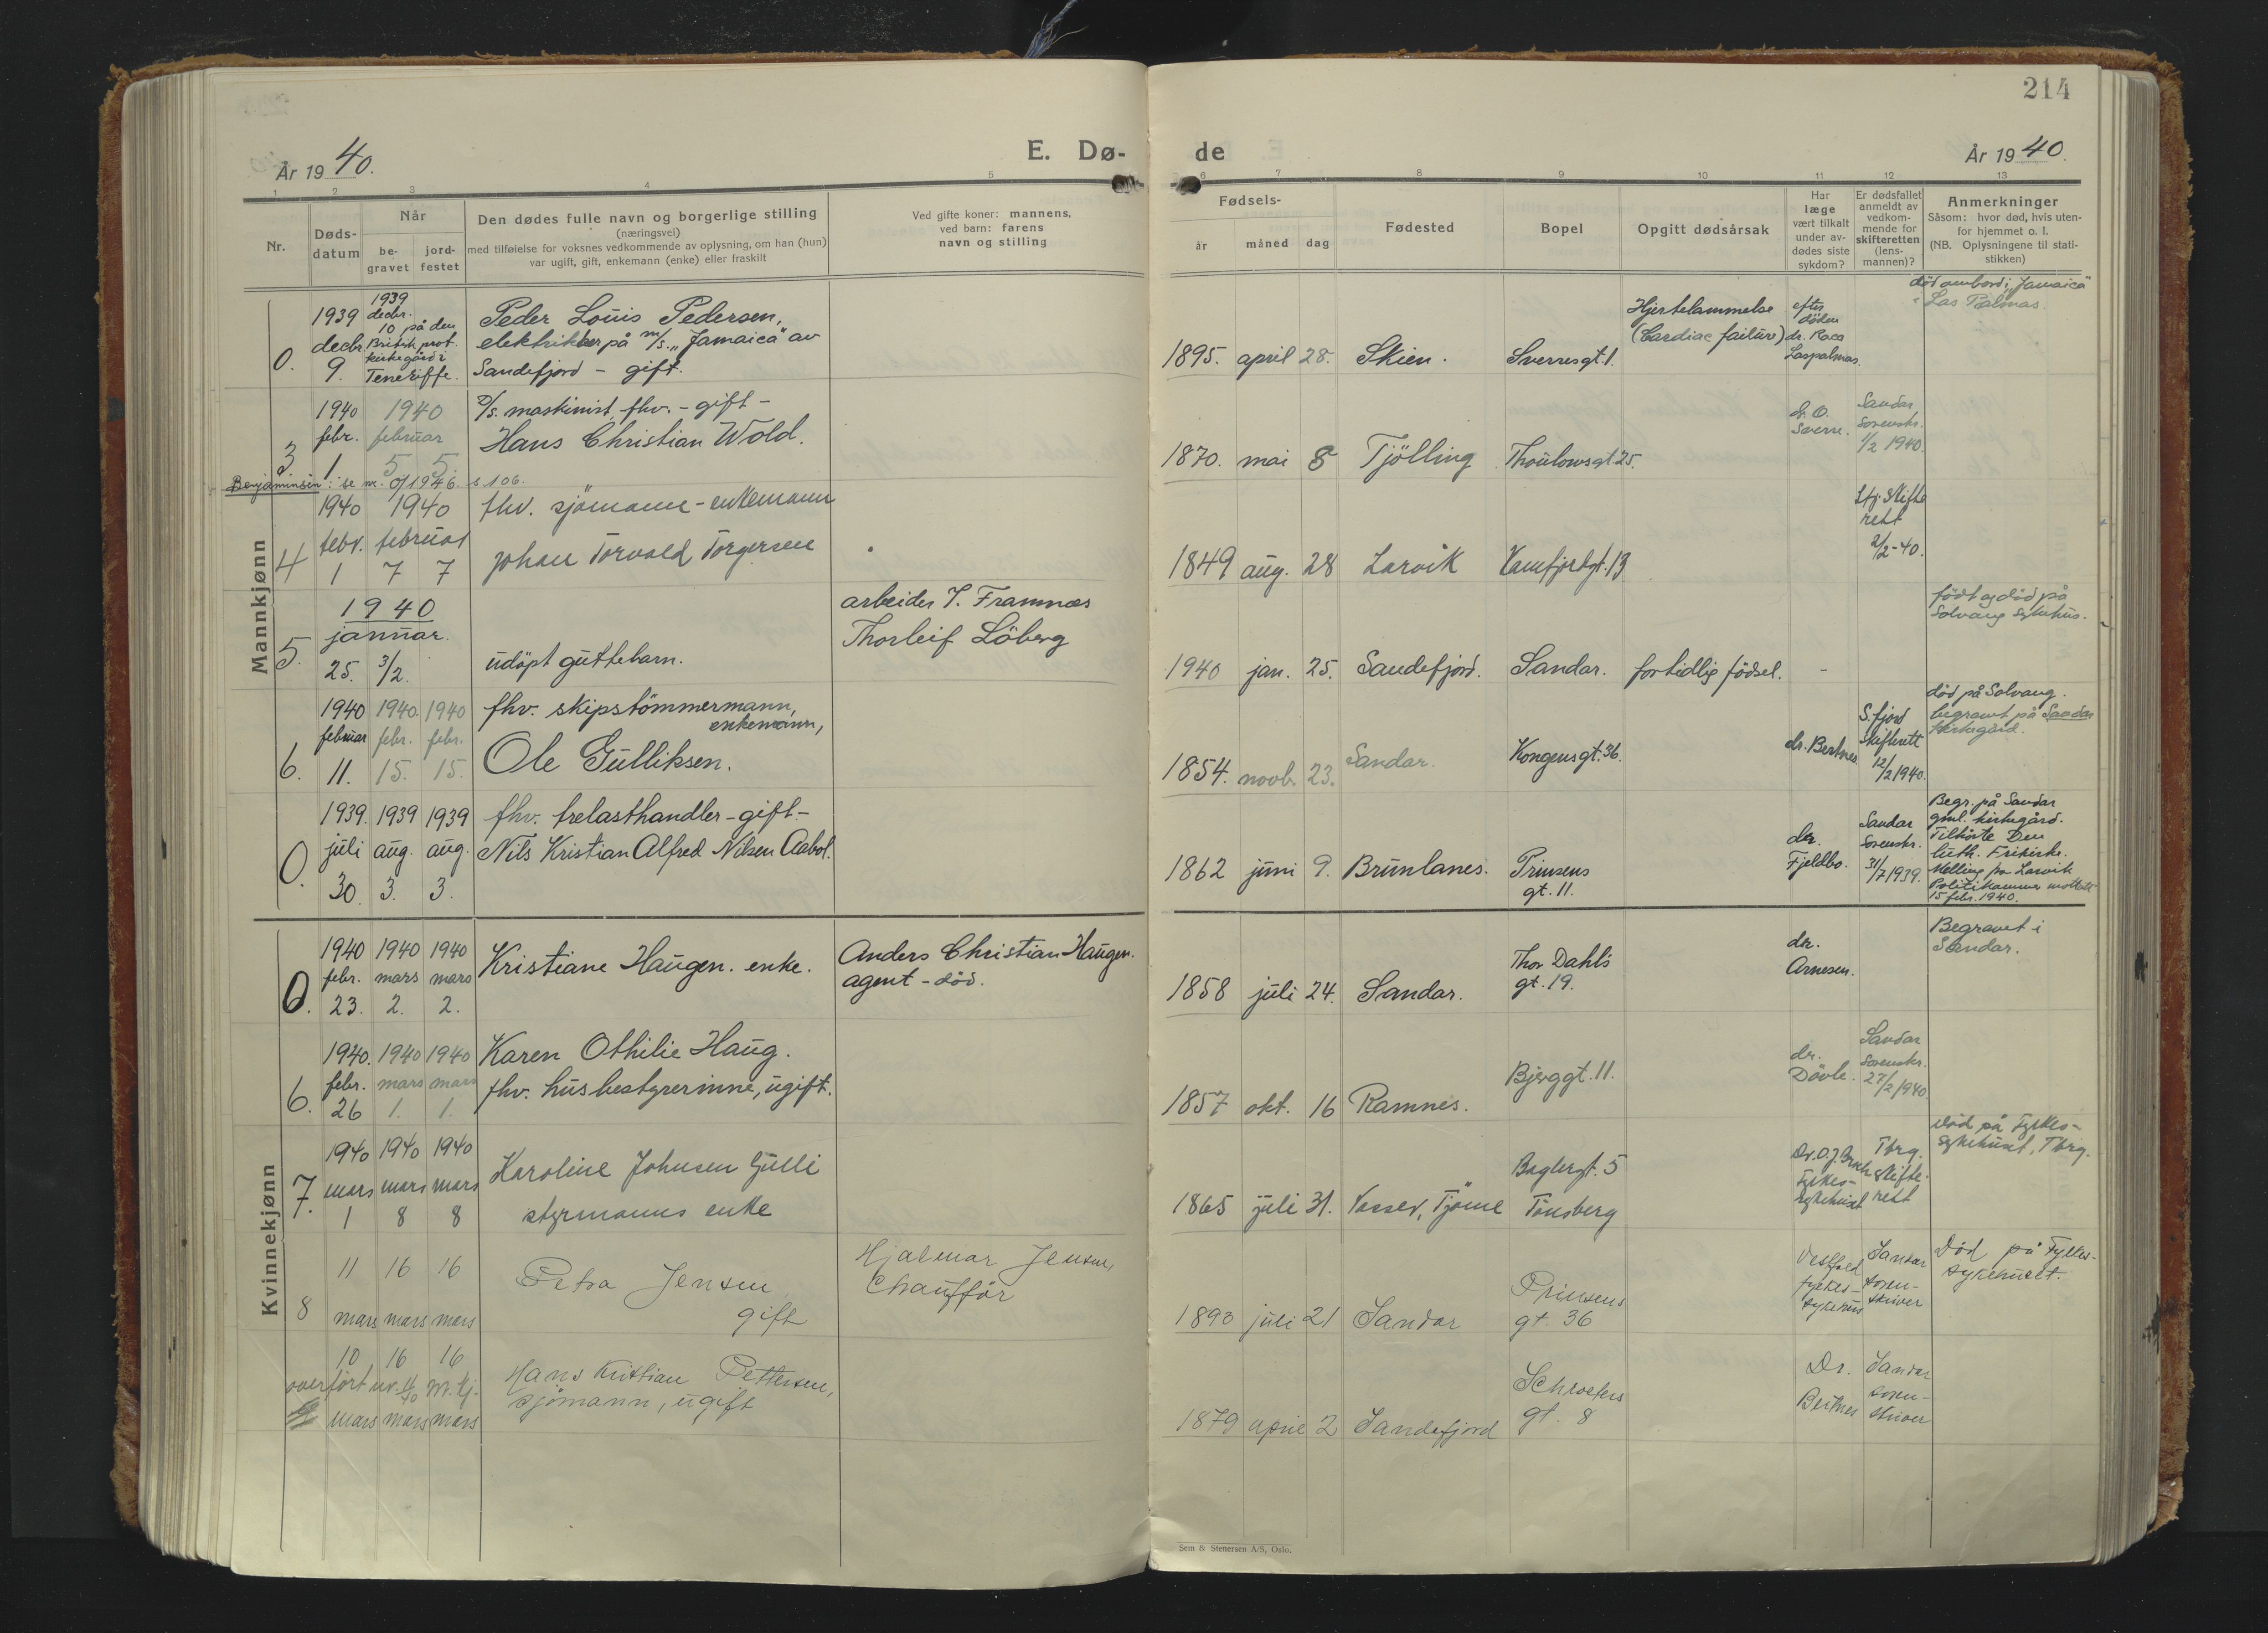 214
År 1940.
E. Dø-
de
År 1940.
1 2 3 4 5 6 7 8 9 10 11 12 13
Nr.
Døds-
datum
Når
be-
gravet
jord-
festet
Den dødes fulle navn og borgerlige stilling
(næringsvei)
med tilføielse for voksnes vedkommende av oplysning, om han (hun)
var ugift, gift, enkemann (enke) eller fraskilt
Ved gifte koner: mannens,
ved barn: farens
navn og stilling
Fødsels-
år måned dag
Fødested
Bopel
Opgitt dødsårsak
Har
læge
vært tilkalt
under av-
dødes siste
sykdom?
Er dødsfallet
anmeldt av
vedkom-
mende for
skifteretten
(lens-
mannen)?
Anmerkninger
Såsom: hvor død, hvis uten-
for hjemmet o. l.
(NB. Oplysningene til stati-
stikken)
Mannkjønn
0.
1939
decbr.
9.
1939
decbr.
10 på den
British prot.
kirkegård i
Teneriffe.
Peder Louis Pedersen,
elektriker på m/s. „Jamaica" av
Sandefjord - gift.
1895. april 28. Skien. Sverresgt. 1.
Hjertelammelse
(Cardiac failure)
efter
døden
dr. Roca
Laspalmas.
død ombord i „Jamaica"
Las Palmas.
3
1940
febr.
1
1940
februar
5 5
maskinist, fhv. - gift -
Hans Christian Wold.
1870. mai 8 Tjölling Thaulowsgt. 25.
dr. O.
Sverre.
Sandar
Sorenskr.
1/2 1940.
Benjaminsen: se nr. 0/1946. s 106.
4
1940
febr.
1
1940
februar
7 7
fhv. sjömann - enkemann
Johan Torvald Torgersen
1849 aug. 28 Larvik Kamfjordgt. 13
Sfj. Skifte
rett
2/2-40.
5.
1940
januar.
25. 3/2.
udöpt guttebarn.
arbeider F. Framnæs
Thorleif Löberg
1940 jan. 25. Sandefjord. Sandar. for tidlig födsel. -
födt og död på
Solvang sykehus.
6.
1940 1940. 1940
februar febr. febr.
11. 15. 15.
fhv. skipstömmermann,
enkemann,
Ole Gulliksen.
1854. novb. 23. Sandar. Kongensgt. 36.
dr. Bertnes
S.fjord
skifterett
12/2 1940.
död på Solvang.
begravet på Sandar
kirkegård.
0.
1939. 1939 1939
juli aug. aug.
30. 3. 3.
fhv. trelasthandler - gift. -
Nils Kristian Alfred Nilsen Aabol.
1862 juni 9. Brunlanes.
Prinsens
gt. 11.
dr.
Fjeldbo.
Sandar
Sorenskr.
31/7 1939.
Begr. på Sandar
gml. kirkegård.
Tilhörte Den
luth. Frikirke.
Melding fra Larvik
Politikammer mottatt
15 febr. 1940.
Kvinnekjønn
0.
1940 1940 1940
febr. mars mars
23. 2. 2.
Kristiane Haugen. enke.
Anders Christian Haugen.
agent - död.
1858 juli 24. Sandar.
Thor Dahl's
gt. 19.
dr.
Arnesen.
Begravet i
Sandar.
6.
1940. 1940 1940
febr. mars mars
26 1. 1.
Karen Othilie Haug.
fhv. husbestyrerinne, ugift.
1857 okt. 16 Ramnes. Bjerggt. 11.
dr.
Dövle.
Sandar
Sorenskr.
27/2 1940.
7.
1940 1940 1940
mars mars mars
1 8 8
Karoline Johnsen Gulli
styrmanns enke
1865 juli 31. Vasser, Tjöme
Baglergt. 5
Tönsberg
Dr. O. J. Broch
Fylkes-
sykehuset
Tbrg.
skifte-
rett
död på Fylkes-
sykehuset, Tbrg.
8
11 16 16
mars mars mars
Petra Jensen
gift
Hjalmar Jensen,
Chaufför
1893 juli 21 Sandar
Prinsens
gt. 36
Vestfold
fylkes-
sykehus
Sandar
soren-
skriver
Död på Fylkes-
sykehuset.
10 16 16
overfört nr. 11/40 M. kj.
mars mars mars
Hans Kristian Pettersen,
sjömann, ugift
1879 april 2 Sandefjord
Schroeters
gt. 8
Dr.
Bertnes
Sandar
soren-
skriver
Sem & Stenersen A/S, Oslo.